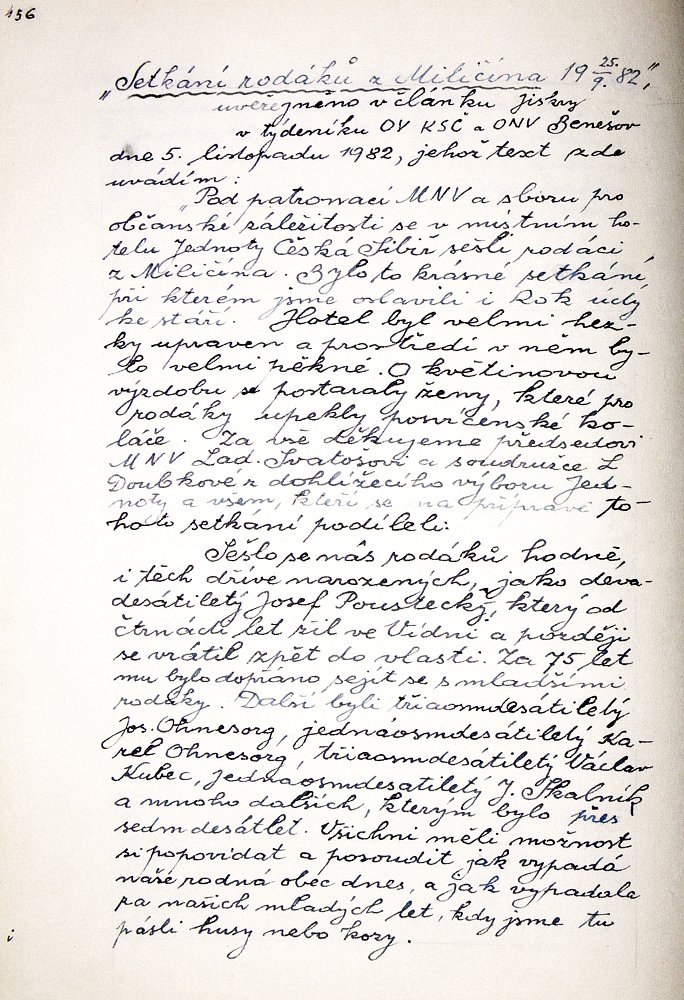 156
„Setkání rodáků z Miličína 19 25./9. 82„"
uveřejněno v článku Jiskry
v týdeníku OV KSČ a ONV Benešov
dne 5. listopadu 1982, jehož text zde
uvádím:
„Pod patronací MNV a sboru pro
občanské záležitosti se v místním ho-
telu Jednoty Česká Sibiř sešli rodáci
z Miličína. Bylo to krásné setkání,
při kterém jsme oslavili i Rok úcty
ke stáří. Hotel byl velmi hez-
ky upraven a prostředí v něm by-
lo velmi pěkné. O květinovou
výzdobu se postaraly ženy, které pro
rodáky upekly posvícenské ko-
láče. Za vše děkujeme předsedovi
MNV Lad. Svatošovi a soudružce L
Doubkové z dohlížecího výboru Jed-
noty a všem, kteří se na přípravě to-
hoto setkání podíleli.
Sešlo se nás rodáků hodně,
i těch dříve narozených, jako deva-
desátiletý Josef Poustecký, který od
čtrnácti let žil ve Vídni a později
se vrátil zpět do vlasti. Za 75 let
mu bylo dopřáno sejít se s mladšími
rodáky. Další byli tříaosmdesátiletý
Jos. Ohnesorg, jednáosmdesátiletý Ka-
rel Ohnesorg, tříaosmdesátiletý Václav
Kubec, jednaosmdesatiletý J. Skalník
a mnoho dalších, kterým bylo přes
sedmdesátlet. Všichni měli možnost
si popovídat a posoudit jak vypadá
naše rodná obec dnes, a jak vypadala
za našich mladých let, kdy jsme tu
pásli husy nebo kozy.
i